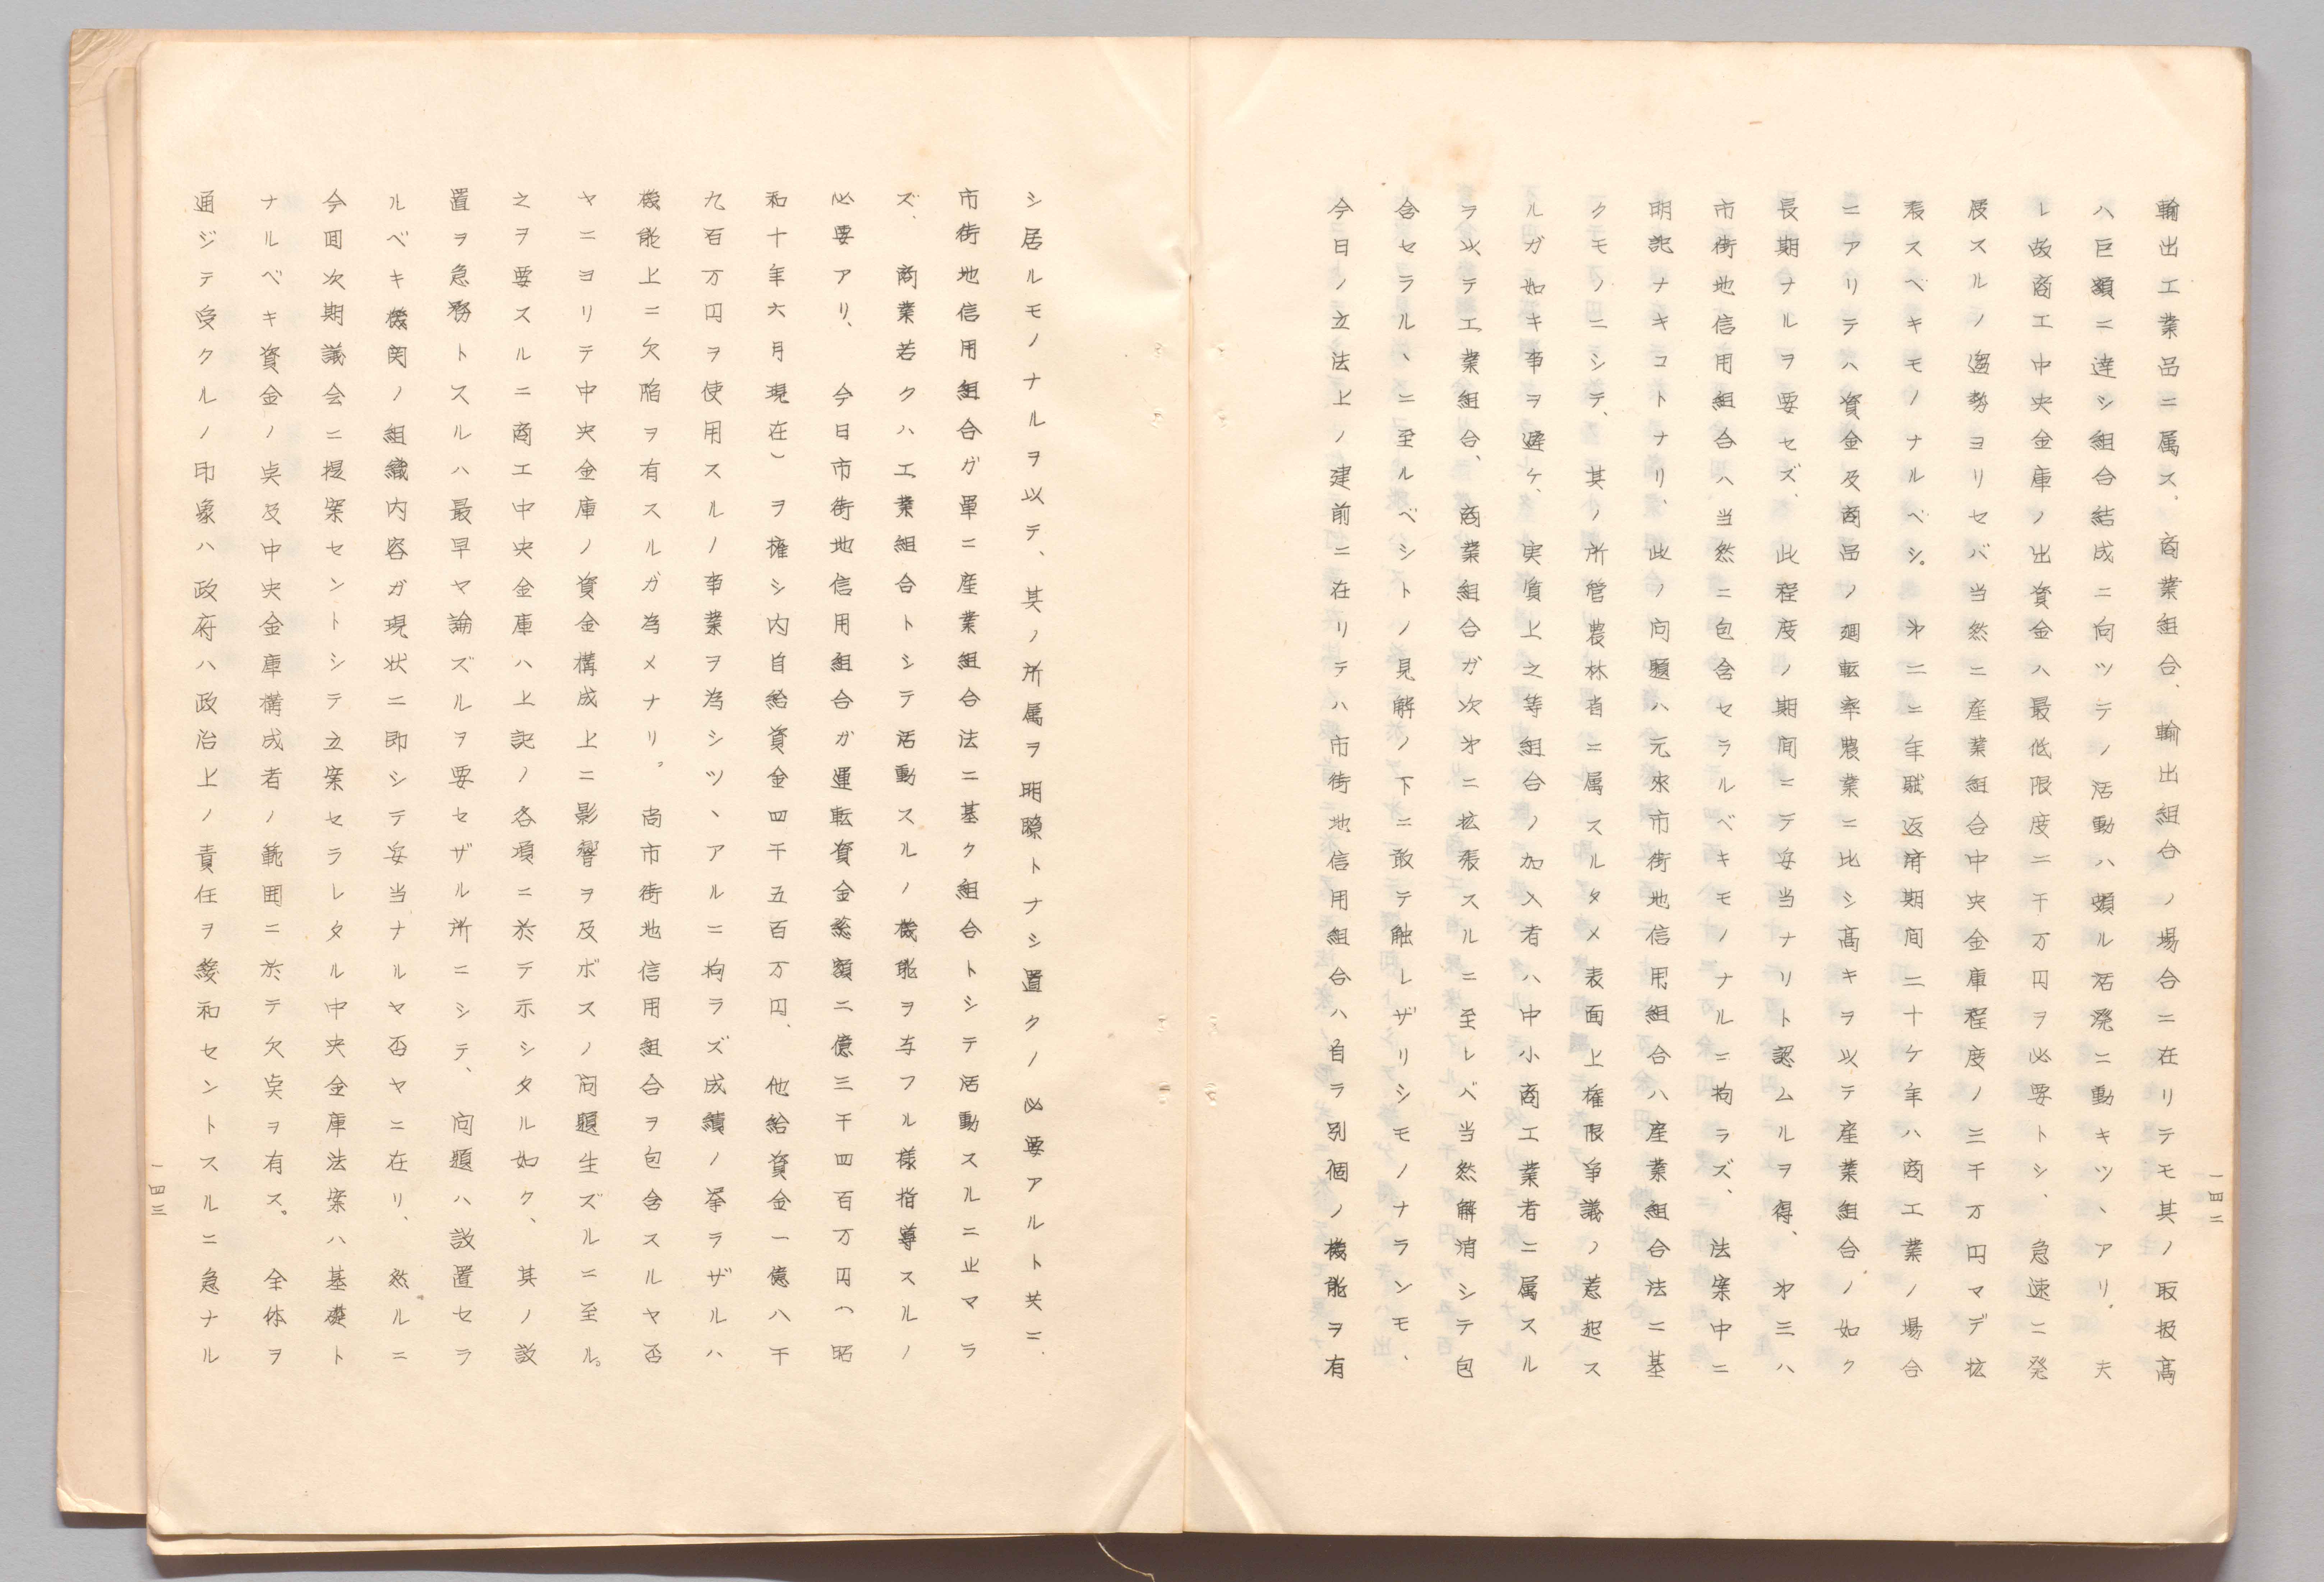 輸出工業品ニ属ス、商業組合、輸出組合ノ場合ニ在リテモ其ノ取扱高
ハ巨額ニ達シ組合結成ニ向ツテノ活動ハ頗ル活溌ニ動キツヽアリ、夫
レ故商工中央金庫ノ出資金ハ最低限度二千万円ヲ必要トシ、急速ニ発
展スルノ趨勢ヨリセバ当然ニ産業組合中央金庫程度ノ三千万円マデ拡
張スベキモノナルベシ。才二ニ年賦返済期間二十ケ年ハ商工業ノ場合
ニアリテハ資金及商品ノ廻転率農業ニ比シ高キヲ以テ産業組合ノ如ク
長期ナルヲ要セズ、此程度ノ期間ニテ妥当ナリト認ムルヲ得、才三ハ
市街地信用組合ハ当然ニ包含セラルベキモノナルニ拘ラズ、法案中ニ
明記ナキコトナリ、此ノ問題ハ元来市街地信用組合ハ産業組合法ニ基
クモノニシテ、其ノ所管農林省ニ属スルタメ表面上権限争議ノ惹起ス
ルガ如キ事ヲ避ケ、実質上之等組合ノ加入者ハ中小商工業者ニ属スル
ヲ以テ工業組合、商業組合ガ次才ニ拡張スルニ至レバ当然解消シテ包
含セラルヽニ至ルベシトノ見解ノ下ニ敢テ触レザリシモノナランモ、
今日ノ立法上ノ建前ニ在リテハ市街地信用組合ハ自ラ別個ノ機能ヲ有
一四二
シ居ルモノナルヲ以テ、其ノ所属ヲ明瞭トナシ置クノ必要アルト共ニ、
市街地信用組合ガ単ニ産業組合法ニ基ク組合トシテ活動スルニ止マラ
ズ、商業若クハ工業組合トシテ活動スルノ機能ヲ与フル様指導スルノ
必要アリ、今日市街地信用組合ガ運転資金総額二億三千四百万円（昭
和十年六月現在）ヲ擁シ内自給資金四千五百万円、他給資金一億八千
九百万円ヲ使用スルノ事業ヲ為シツヽアルニ拘ラズ成績ノ挙ラザルハ
機能上ニ欠陥ヲ有スルガ為メナリ。尚市街地信用組合ヲ包含スルヤ否
ヤニヨリテ中央金庫ノ資金構成上ニ影響ヲ及ボスノ問題生ズルニ至ル。
之ヲ要スルニ商工中央金庫ハ上記ノ各項ニ於テ示シタル如ク、其ノ設
置ヲ急務トスルハ最早ヤ論ズルヲ要セザル所ニシテ、問題ハ設置セラ
ルベキ機関ノ組織内容ガ現状ニ即シテ妥当ナルヤ否ヤニ在リ、然ルニ
今回次期議会ニ提案セントシテ立案セラレタル中央金庫法案ハ基礎ト
ナルベキ資金ノ点及中央金庫構成者ノ範囲ニ於テ欠点ヲ有ス。全体ヲ
通ジテ受クルノ印象ハ政府ハ政治上ノ責任ヲ緩和セントスルニ急ナル
一四三